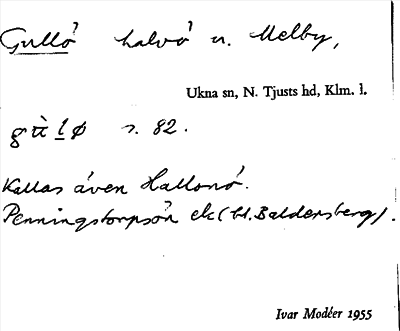 Gullö halvö u. Melby,
Ukna sn, N. Tjusts hd, Klm. l.
gùlø s. 82.
Kallas även Hallonö.
Penningstorpsön ek (bl. Baldersberg).
Ivar Modéer 1955